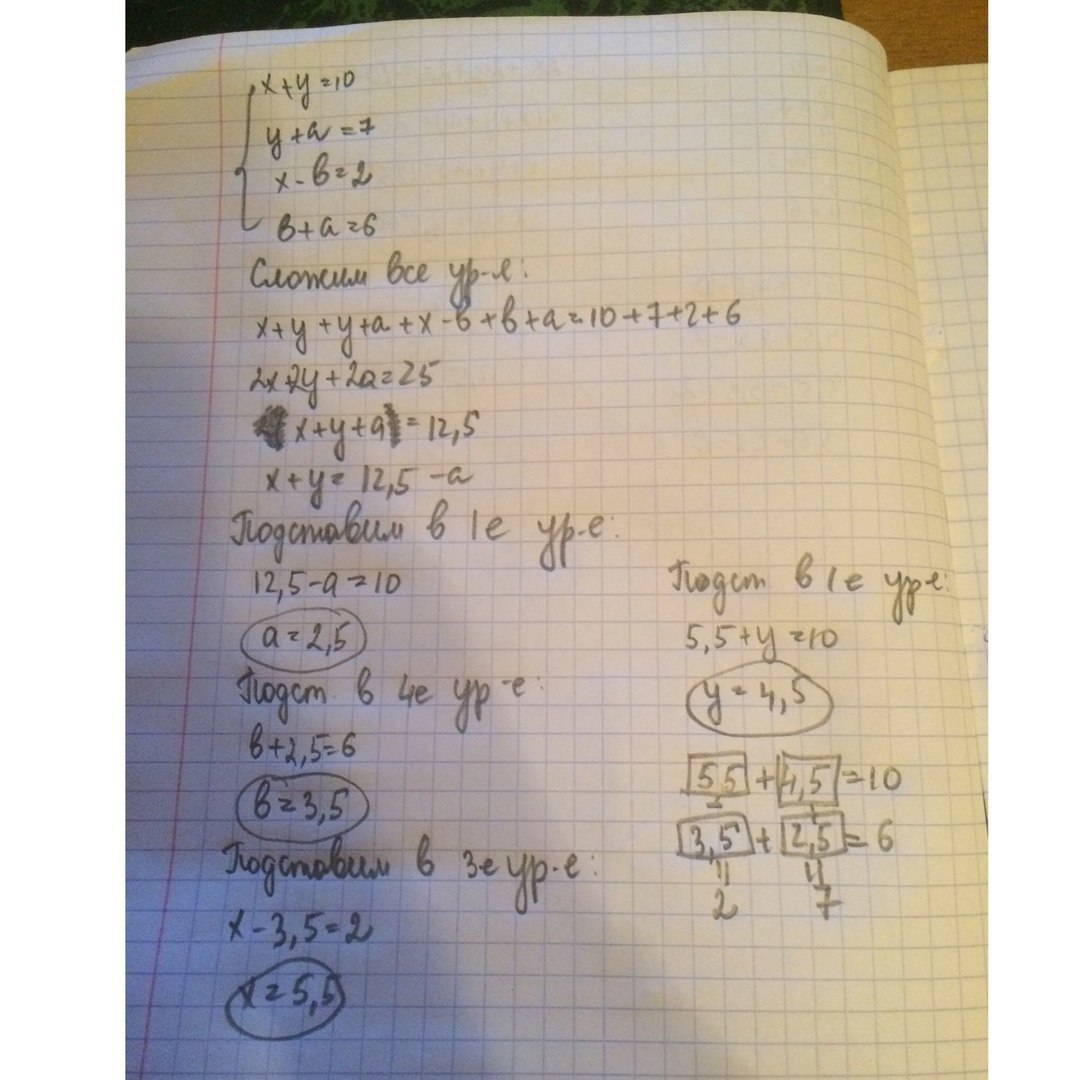 x+y=10
y+a=7
x-в=2
в+a=6
Сложим все ур-е:
x+y+y+a+x-в+в+a=10+7+2+6
2x+2y+2a=25
x+y+a=12,5
x+y=12,5-a
Подставим в 1е ур-е:
12,5-a=10
a=2,5
Подст. в 4е ур-е:
в+2,5=6
в=3,5
Подставим в 3е ур-е:
x-3,5=2
x=5,5
Подст в 1е ур-е:
5,5+y=10
y=4,5
5,5+4,5=10
- +
3,5+2,5=6
= =
2 7